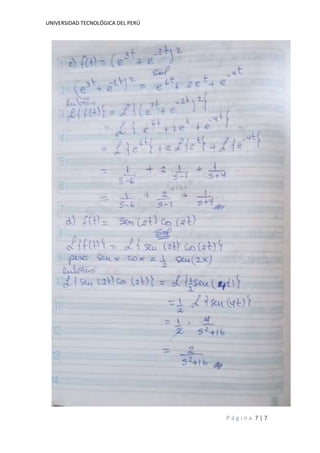 UNIVERSIDAD TECNOLÓGICA DEL PERÚ
c) f(t) = (e^{3t} + e^{-2t})^2
Sol
(e^{3t} + e^{-2t})^2 = e^{6t} + 2e^t + e^{-4t}
entonces
L{f(t)} = L{(e^{3t} + e^{-2t})^2}
= L{e^{6t} + 2e^t + e^{-4t}}
= L{e^{6t}} + 2L{e^t} + L{e^{-4t}}
= 1/(s-6) + 2 · 1/(s-1) + 1/(s+4)
= 1/(s-6) + 2/(s-1) + 1/(s+4)
d) f(t) = sen(2t) co(2t)
Sol
L{f(t)} = L{sen(2t) co(2t)}
pero: sen x cox = 1/2 sen(2x)
entonces
L{sen(2t) co(2t)} = L{1/2 sen(4t)}
= 1/2 L{sen(4t)}
= 1/2 · 4/(s^2+16)
= 2/(s^2+16)
Página 7 | 7